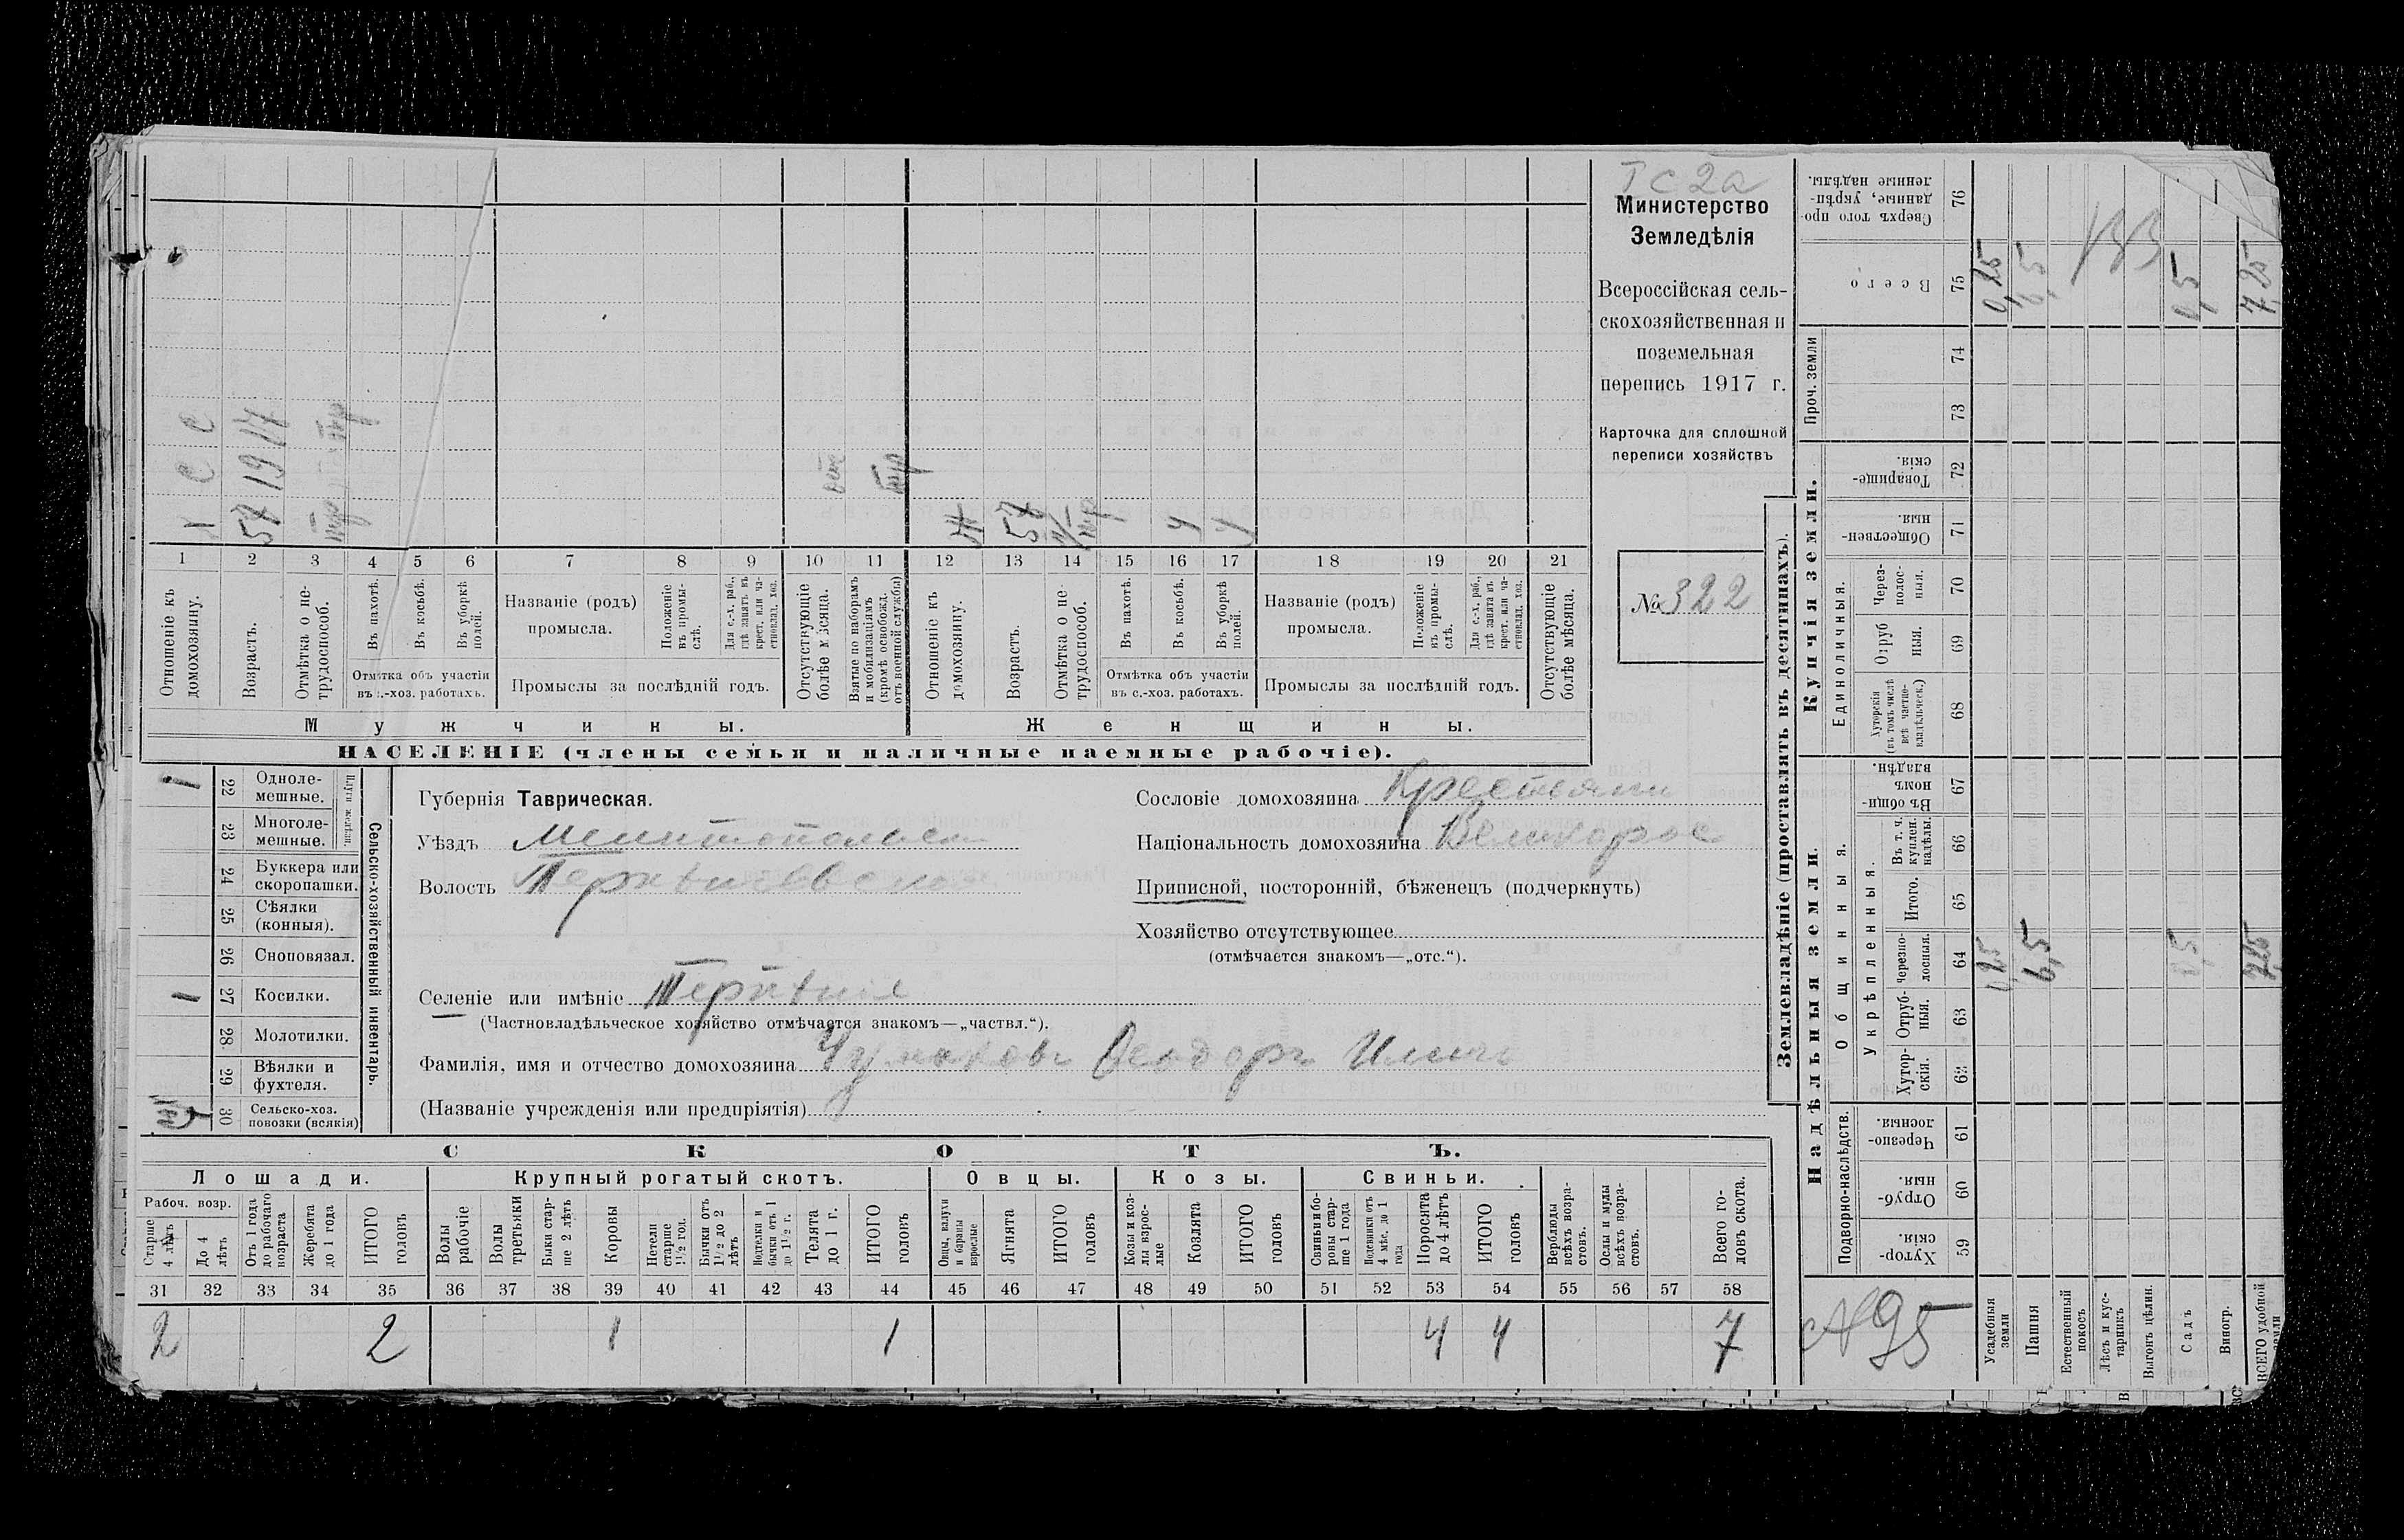 ТС 2а
Министерство
Земледѣлія
Всероссійская сель-
скохозяйственная и
поземельная
перепись 1917 г.
Карточка для сплошной
переписи хозяйствъ
№ 322
Х С С
57 19 17
отс
Ж
57
1 2 3 4 5 6 7 8 9 10 11 12 13 14 15 16 17 18 19 20 21
Отношеніе къ домохозяину.
Возрастъ.
Отмѣтка о не-трудоспособ.
Въ пахотѣ.
Въ косьбѣ.
Въ уборкѣ полей.
Отмѣтка объ участіи
въ с.-хоз. работахъ.
Названіе (родъ)
промысла.
Положеніе въ промы-слѣ.
Для с.-х. раб., гдѣ занятъ въ крест. или ча-стновлад. хоз.
Промыслы за послѣдній годъ.
Отсутствующіе болѣе мѣсяца.
Взятые по наборамъ и мобилизаціямъ (кромѣ освобожд. отъ военной службы)
Отношеніе къ домохозяину.
Возрастъ.
Отмѣтка о не-трудоспособ.
Въ пахотѣ.
Въ косьбѣ.
Въ уборкѣ полей.
Отмѣтка объ участіи
въ с.-хоз. работахъ.
Названіе (родъ)
промысла.
Положеніе въ промы-слѣ.
Для с.-х. раб., гдѣ занята въ крест. или ча-стновлад. хоз.
Промыслы за послѣдній годъ.
Отсутствующіе болѣе мѣсяца.
Мужчины. Женщины.
НАСЕЛЕНІЕ (члены семьи и наличные наемные рабочіе).
1 22 Одноле-мешные.
23 Многоле-мешные.
Плуги желѣзн.
24 Буккера или скоропашки.
25 Сѣялки (конныя).
26 Сноповязал.
1 27 Косилки.
28 Молотилки.
29 Вѣялки и фухтеля.
30 Сельско-хоз. повозки (всякія)
Сельско-хозяйственный инвентарь.
Губернія Таврическая.
Уѣздъ Мелитопольск
Волость Терпѣніевская
Селеніе или имѣніе Терпѣніе
(Частновладѣльческое хозяйство отмѣчается знакомъ—„частвл.“).
Фамилія, имя и отчество домохозяина Чумаковъ Ѳеодоръ Ильичъ
(Названіе учрежденія или предпріятія)
Сословіе домохозяина Крестьянин
Національность домохозяина Великорос
Приписной, посторонній, бѣженецъ (подчеркнуть)
Хозяйство отсутствующее
(отмѣчается знакомъ—„отс.“).
СКОТЪ.
Лошади. Крупный рогатый скотъ. Овцы. Козы. Свиньи.
Рабоч. возр.
Старше 4 лѣтъ
До 4 лѣтъ
Отъ 1 года до рабочаго возраста
Жеребята до 1 года
ИТОГО головъ
Волы рабочіе
Волы третьяки
Быки стар-ше 2 лѣтъ
Коровы
Нетели старше 1½ год.
Бычки отъ 1½ до 2 лѣтъ
Подтелки и бычки отъ 1 до 1½ г.
Телята до 1 г.
ИТОГО головъ
Овцы, валухи и бараны взрослые
Ягнята
ИТОГО головъ
Козы и коз-лы взрос-лые
Козлята
ИТОГО головъ
Свиньи и бо-ровы стар-ше 1 года
Подсвинки отъ 4 мѣс. до 1 года
Поросята до 4 лѣтъ
ИТОГО головъ
Верблюды всѣхъ возра-стовъ.
Ослы и мулы всѣхъ возра-стовъ.
Всего го-ловъ скота.
31 32 33 34 35 36 37 38 39 40 41 42 43 44 45 46 47 48 49 50 51 52 53 54 55 56 57 58
2 2 1 1 4 4 7
Землевладѣніе (проставлять въ десятинахъ).
Купчія земли.
Надѣльныя земли.
Сверхъ того про-данные, укрѣп-ленные надѣлы. 76
Всего 75 0,25 6,5 0,5 7,25
Проч. земли 74
73
Товарище-скія. 72
Обществен-ныя. 71
Единоличныя.
Через-полос-ныя. 70
Отруб ныя. 69
Хуторскія (въ томъ числѣ всѣ частно-владѣльческ.) 68
Общинныя.
Въ общи-номъ владѣн. 67
Укрѣпленныя.
Въ т. ч. куплен. надѣлы. 66
Итого. 65
Черезпо-лосныя. 64 6,5 7,25
Отруб-ныя. 63
Хутор-скія. 62
Подворно-наслѣдств.
Черезпо-лосныя. 61
Отруб-ныя. 60
Хутор-скія. 59
95
Усадебныя земли
Пашня
Естественный покосъ
Лѣсъ и кус-тарникъ
Выгонъ цѣлин.
Садъ
Виногр.
ВСЕГО удобной земли